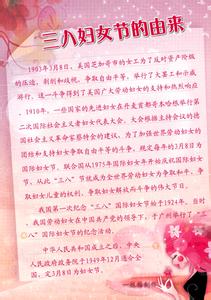 三八妇女节的由来
1903年3月8日，美国芝加哥市的女工为了反对资产阶级
的压迫、剥削和歧视，争取自由平等，举行了大罢工和示威
游行，这一斗争得到了美国广大劳动妇女的支持和热烈响应。
1910年，一些国家的先进妇女在丹麦首都哥本哈根举行第
二次国际社会主义者妇女代表大会，大会根据主持会议的德
国社会主义革命家蔡特金的建议，为了加强世界劳动妇女的
团结和支持妇女争取自由平等的斗争，规定每年的3月8日为
国际妇女节。联合国从1975年国际妇女年开始庆祝国际妇女
节，从此“三八”节就成为全世界妇女争取权利、争取
妇女儿童的权利，争取妇女解放而斗争的伟大节日。
我国第一次纪念“三八”国际妇女节始于1924年，当时
我国劳动妇女在中国共产党的领导下，于广州举行了“三
八”国际妇女节的纪念活动。
中华人民共和国成立之后，中央
人民政府政务院于1949年12月通令全
国，定3月8日为妇女节。